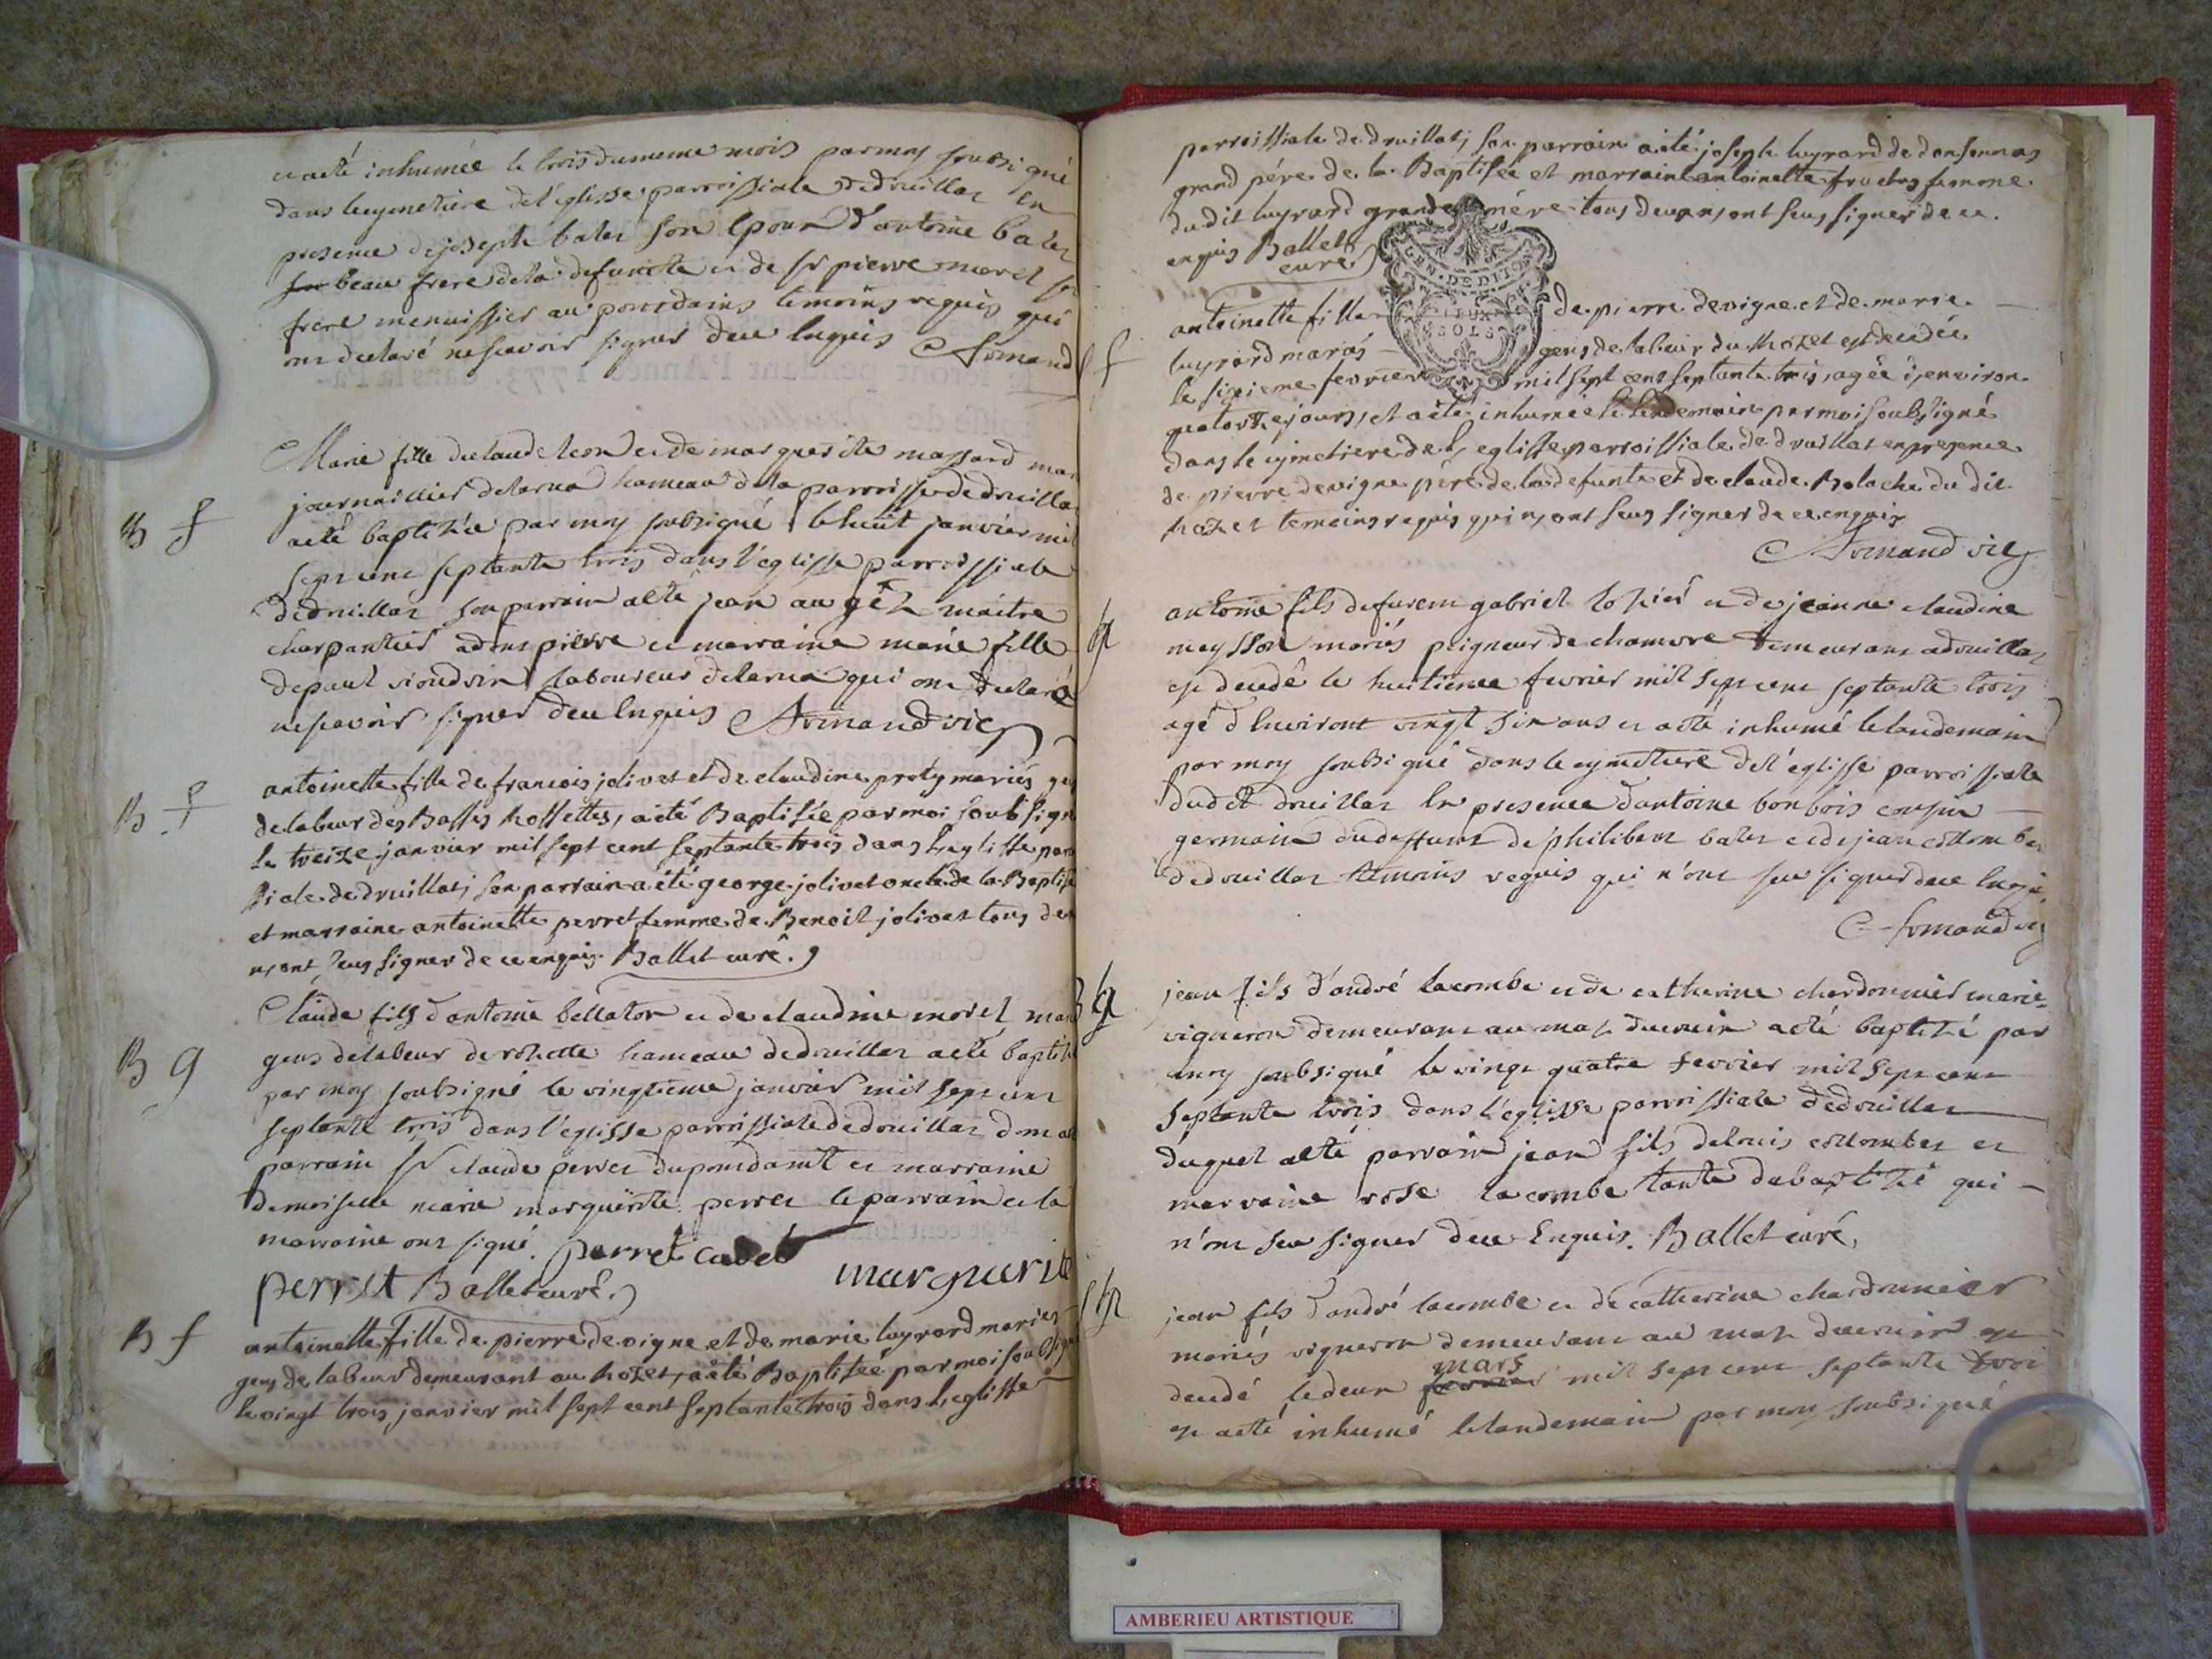 et a eté inhumée le trois du meme mois par moy soubsigné
dans le cymetiere de l'eglisse parroissiale de druillat en
presence de joseph balet son epoux d'antoine balet
son beau frere de la defuncte et de sr pierre morel
frere menuissier au pontdains temoins requis qui
ont declaré ne scavoir signer de ce enquis Armand
Marie fille de claude leon et de marguerite massard
journaillier de larua hameau de la parroisse de druillat
a eté baptizée par moy soubsigné le huit janvier mil
sept cent septante trois dans l'eglisse parroissiale
de druillat son parrain a eté jean maitre
charpantier a dompierre et marraine marie fille
de paul laboureur de larua qui ont declaré
ne scavoir signer de ce enquis Armand vic
B f
antoinette fille de francois jolivet et de claudine proty mariés
de labeur des Basses Rossettes, a eté Baptisée par moi soubsigné
le treize janvier mil sept cent septante trois dans l'eglisse
siale de druillat, son parrain a été george jolivet oncle de la
et marraine antoinette perret femme de Benoit jolivet tous
n'ont seus signer de ce enquis. Ballet curé.
B f
Claude fils d'antoine bellaton et de claudine morel
gens de labeur de rossette hameau de druillat a eté
par moy soubsigné le vingtieme janvier mil sept cent
septante trois dans l'eglisse parroissiale de druillat
parrain sr claude perret du pontdaint et marraine
demoiselle marie marguerite perret le parrain et la
marraine ont signé. perret cadet
marguerite
perret Ballet curé.
B g
antoinette fille de pierre devigne et de marie luyrard mariés
gens de labeur demeurant au mozet, a eté Baptisée par moi
le vingt trois janvier mil sept cent septante trois dans l'eglisse
B f
parroissiale de druillat, son parrain a eté joseph luyrard de donsonnas
grand pére de la Baptisée et marraine antoinette femme
dudit luyrard grande mére tous deux n'ont seus signer de ce
enquis Ballet
curé
GEN. DE DIJON
DEUX
SOLS
antoinette fille de pierre devigne et de marie
luyrard mariés gens de labeur du mozet est decedée
le sixieme fevrier mil sept cent septante trois, agée d'environ
quatorze jours, et a eté inhumée le lendemain par moi soubsigné
dans le cymetiere de l'eglisse parroissiale de druillat en presence
de pierre devigne pére de la defunte et de claude Bolache du dit
mozet temoins requis qui n'ont seus signer de ce enquis
Armand vic
antoine fils de furent gabriel et de jeanne claudine
maysson mariés peigneur de chamvre demeurant a druillat
est decedé le huitieme fevrier mil sept cent septante trois
agé d'environt vingt six ans et a eté inhumé le landemain
par moy soubsigné dans le cymetiere de l'eglisse parroissiale
dudit druillat en presence d'antoine bonbois cousin
germain du deffunt de philibert balet et de jean collombet
de druillat temoins requis qui n'ont seu signer de ce enquis
Armand vic
jean fils d'andré lacombe et de catherine chardonnier mariés
vigneron demeurant au mas a eté baptizé par
moy soubsigné le vingt quatre fevrier mil sept cent
septante trois dans l'eglisse parroissiale de druillat
duquel a eté parrain jean fils de louis collombet et
marraine rose lacombe tante du baptizé qui
n'ont seu signer de ce Enquis. Ballet curé.
jean fils d'andré lacombe et de catherine chardonnier
mariés vigneron demeurant au mas est
decedé le deux mars mil sept cent septante trois
et a eté inhumé le landemain par moy soubsigné
AMBERIEU ARTISTIQUE